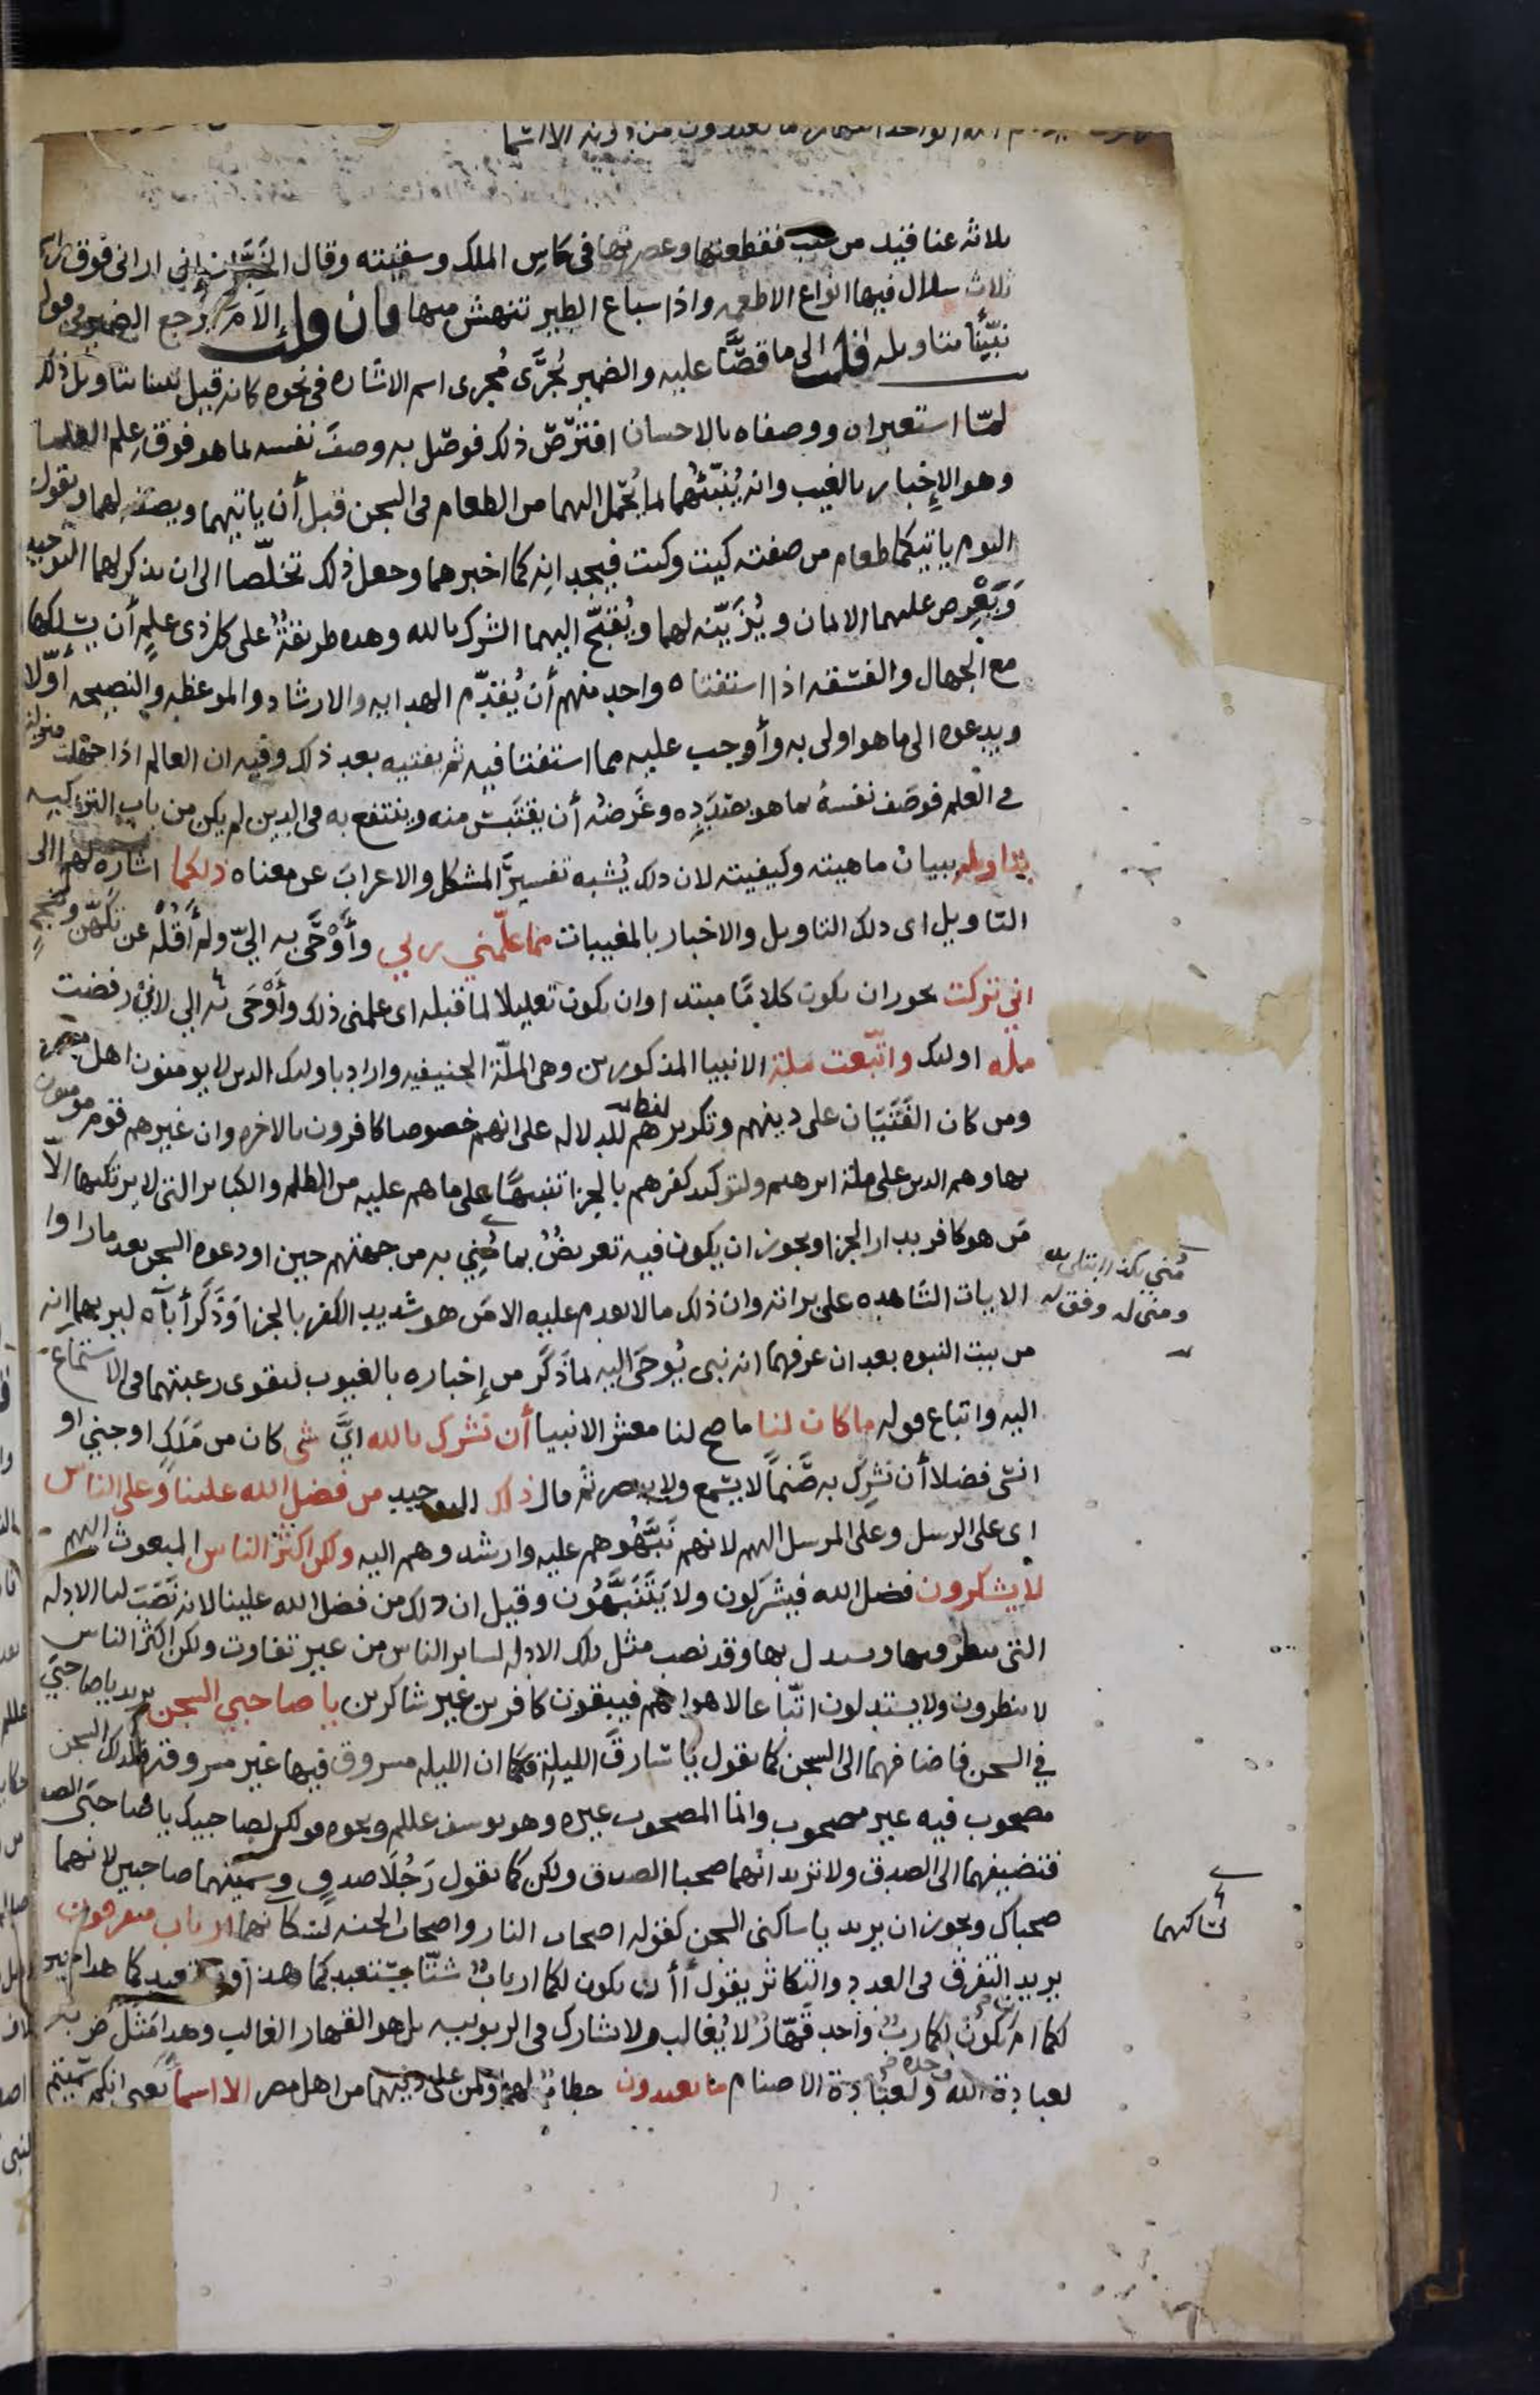 الواحد القهار ما تعبدون من دونه الا اسما
ثلاثه عناقيد من عنب فقطعتها وعصرتها في كاس الملك وسقيته وقال الخباز اني اراني فوق راسي
ثلاث سلال فيها انواع الاطعمه واذا سباع الطير تنهش منها فان قلت إلامَ رجع الضمير في قوله
نبّئنا بتاويله قلت الى ما قصّا عليه والضمير يُجرَّى مُجرى اسم الاشاره في نحوه كانه قيل نبئنا بتاويل ذلك
لمّا استعبراه ووصفاه بالاحسان افترَص ذلك فوصّل به وصفَ نفسه بما هو فوق عِلم العلما
وهو الإخبار بالغيب وانه يُنبّئهُما بما يُحمل اليهما من الطعام في السجن قبل أن ياتيهما ويصفه لهما ويقول
اليوم ياتيكما طعام من صفته كيت وكيت فيجدانه كما اخبرهما وجعل ذلك تخلّصا الى ان يذكر لهما التوحيد
وَيَعْرِض عليهما الايمان ويُزَيّنه لهما ويُقبّح اليهما الشرك بالله وهده طريقةٌ على كل ذي علمٍ أن يسلكها
مع الجهال والفسَقه اذا استفتاه واحد منهم أن يُقدّم الهدايه والارشاد والموعظه والنصيحه أوّلا
ويدعوه الى ما هو اولى به وأوجب عليه مما استفتا فيه ثم يفتيه بعد ذلك وفيه ان العالم اذا جهلت منزلته
في العلم فوصَف نفسهُ بما هو بصدَده وغَرضُه أن يقتَبسَ منه وينتفع به في الدين لم يكن من باب التزكيه
بتاويله ببيان ماهيته وكيفيته لان ذلك يُشبه تفسيرَ المشكل والاعرابَ عن معناه ذلكما اشاره لهما الى
التاويل اي ذلك التاويل والاخبار بالمغيبات مما علّمني ربي وأَوْحَى به اليّ ولم أقُلْه عن تكهّن وتنجيمٍ
اني تركت يجوز ان يكون كلامًا مبتدا وان يكون تعليلا لما قبله اى علمني ذلك وأَوْحَى به الي لاني رفضت
ملّه اولئك واتّبعت ملّة الانبيا المذكورين وهي الملّة الحنيفيه واراد باولئك الذين لا يومنون اهل مصر
ومن كان الفَتَيَان على دينهم وتكريرهم للدلاله على انهم خصوصا كافرون بالاخره وان غيرهم قوم مومنون
بها وهم الذين على ملة ابرهيم ولتوكيد كفرهم بالجزا تنبيهًا على ما هم عليه من الظلم والكباير التي لا يرتكبها الّا
مَن هو كافر بدار الجزا ويجوز ان يكون فيه تعريضٌ بما مُنِي به من جهتهم حين اودعوه السجن بعد ما راوا
الايات الشاهده على براته وان ذلك ما لا يقدم عليه الا مَن هو شديد الكفر بالجزا وَذَكَر أباه ليريهما انه
من بيت النبوه بعد ان عرفهما انه نبي يُوحَى اليه بما ذَكَر من إخباره بالغيوب ليقوى رغبتهما في الاستماع
اليه واتباع قوله ما كان لنا ما صح لنا معشر الانبيا أن نشرك بالله ايَّ شي كان من مَلَكٍ او جنيٍ او
انسي فضلا أن نشرك به صَنمًا لا يسمع ولا يبصر ثم قال ذلك التوحيد من فضل الله علينا وعلى الناس
اى على الرسل وعلى المرسل اليهم لانهم نَبَّهُوهم عليه وارشدوهم اليه ولكن اكثر الناس المبعوث اليهم
لا يشكرون فضل الله فيشركون ولا يَتَنَبَّهُون وقيل ان ذلك من فضل الله علينا لانه نَصَبَ لنا الادله
التي ننظر فيها ونستدل بها وقد نصب مثل تلك الادله لساير الناس من غير تفاوت ولكن اكثر الناس
لا ينظرون ولا يستدلون اتّباعا لاهوائهم فيبقون كافرين غير شاكرين يا صاحبي السجن يريد يا صاحبيّ
في السجن فاضافهما الى السجن كما تقول يا سارقَ الليلة فكما ان الليله مسروق فيها غير مسروقه فكذلك السجن
مصحوب فيه غير مصحوب وانما المصحوب غيره وهو يوسف عللم ونحوه قولك لصاحبيك يا صاحبَى الصدق
فتضيفهما الى الصدق ولا تريد انّهما صحبا الصدق ولكن كما تقول رَجُلَا صدقٍ وسميتهما صاحبين لانهما
صحباك ويجوز ان يريد يا ساكني السجن كقوله اصحاب النار واصحاب الجنه أارباب متفرقون
يريد التفرق في العدد والتكاثر يقول أأن يكون لكما اربابٌ شتّا يستعبدكما هذا ويستعبدكما هدا خير
لكما ام يكون لكما ربٌ واحد قهّارٌ لا يُغالب ولا يشارك في الربوبيه بل هو القهار الغالب وهدا مَثل ضربه
لعبادة الله وحده ولعبادة الاصنام ما تعبدون خطابٌ لهما ولمن على دينهما من اهل مصر الا اسماً يعني انكم سمّيتم
مُني بكذا ابتلي به
ومني له وفق له
لسّاكنهما